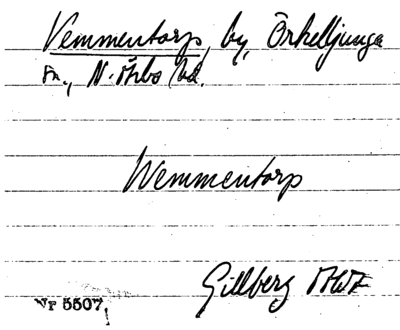 Vemmentorp, by, Örkelljunga
sn., N. Åsbo hd.
Wemmentorp
Gillberg
Nr 5507